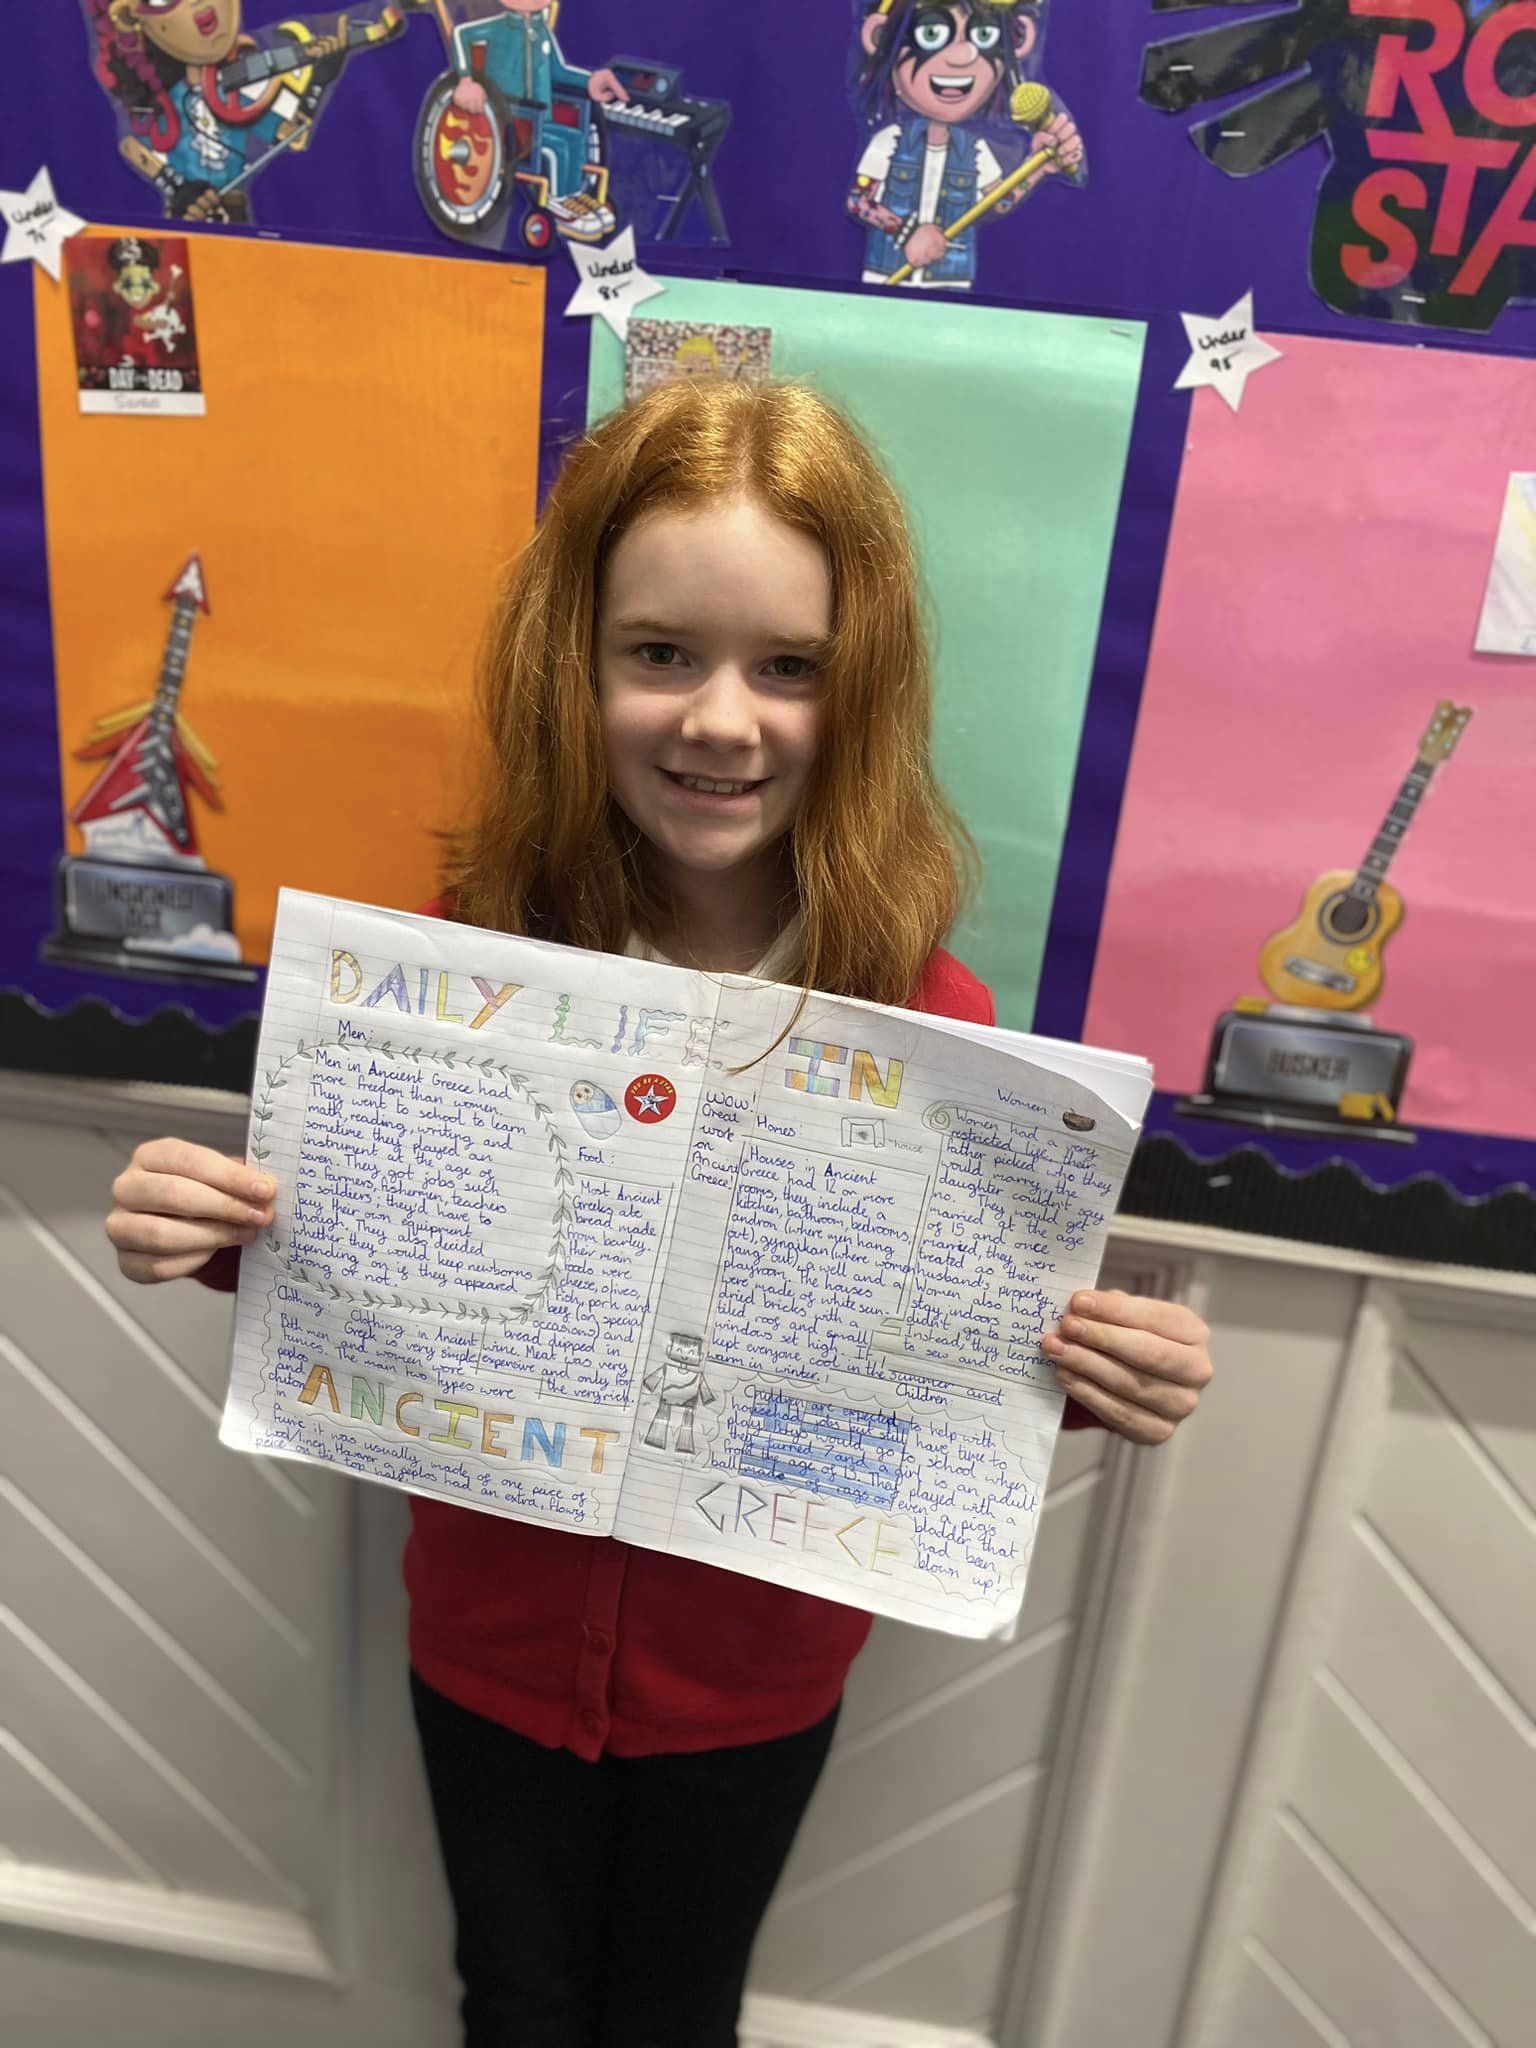 ROCK
STA
Under
7s
Under
8s
Under
9s
DAY of the DEAD
BUSKER
DAILY LIFE IN
ANCIENT
GREECE
Men:
Men in Ancient Greece had
more freedom than women.
They went to school to learn
math, reading, writing and
sometime they played an
instrument at the age of
seven. They got jobs such
as farmers, fishermen, teachers
or soildiers; they'd have to
buy their own equipment
though. They also decided
whether they would keep newborns
depending on if they appeared
strong or not.
YOU'RE A STAR
Food:
Most Ancient
Greeks ate
bread made
from barley.
Their main
foods were
cheese, olives,
fish, pork and
beef (on special
occasions) and
bread dipped in
wine. Meat was very
expensive and only for
the very rich.
Clothing:
Clothing in Ancient
Greek is very simple.
Both men and women wore
tunics. The main two types were
peplos
and
chiton
in
a
tunic it was usually made of one peice of
wool/linen. However a peplos had an extra, flowy
peice on the top half.
WOW!
Great
work
on
Ancient
Greece!
Homes:
house
Houses in Ancient
Greece had 12 or more
rooms, they include, a
kitchen, bathroom, bedrooms,
andron (where men hang
out), gynaikan (where women
hang out), a well and a
playroom. The houses
were made of white sun-
dried bricks with a
tiled roof and small
windows set high. It
kept everyone cool in the summer and
warm in winter!
Women:
Women had a very
restricted life, their
father picked who they
would marry, the
daughter couldn't say
no. They would get
married at the age
of 15 and once
married, they were
treated as their
husbands property.
Women also had to
stay indoors and
didn't go to school.
Instead, they learned
to sew and cook.
Children:
Children are expected to help with
household jobs but still have time to
play. Boys would go to school when
they turned 7 and a girl is an adult
from the age of 13. They played with a
ball made of rags or even a pig's
bladder that
had been
blown up!